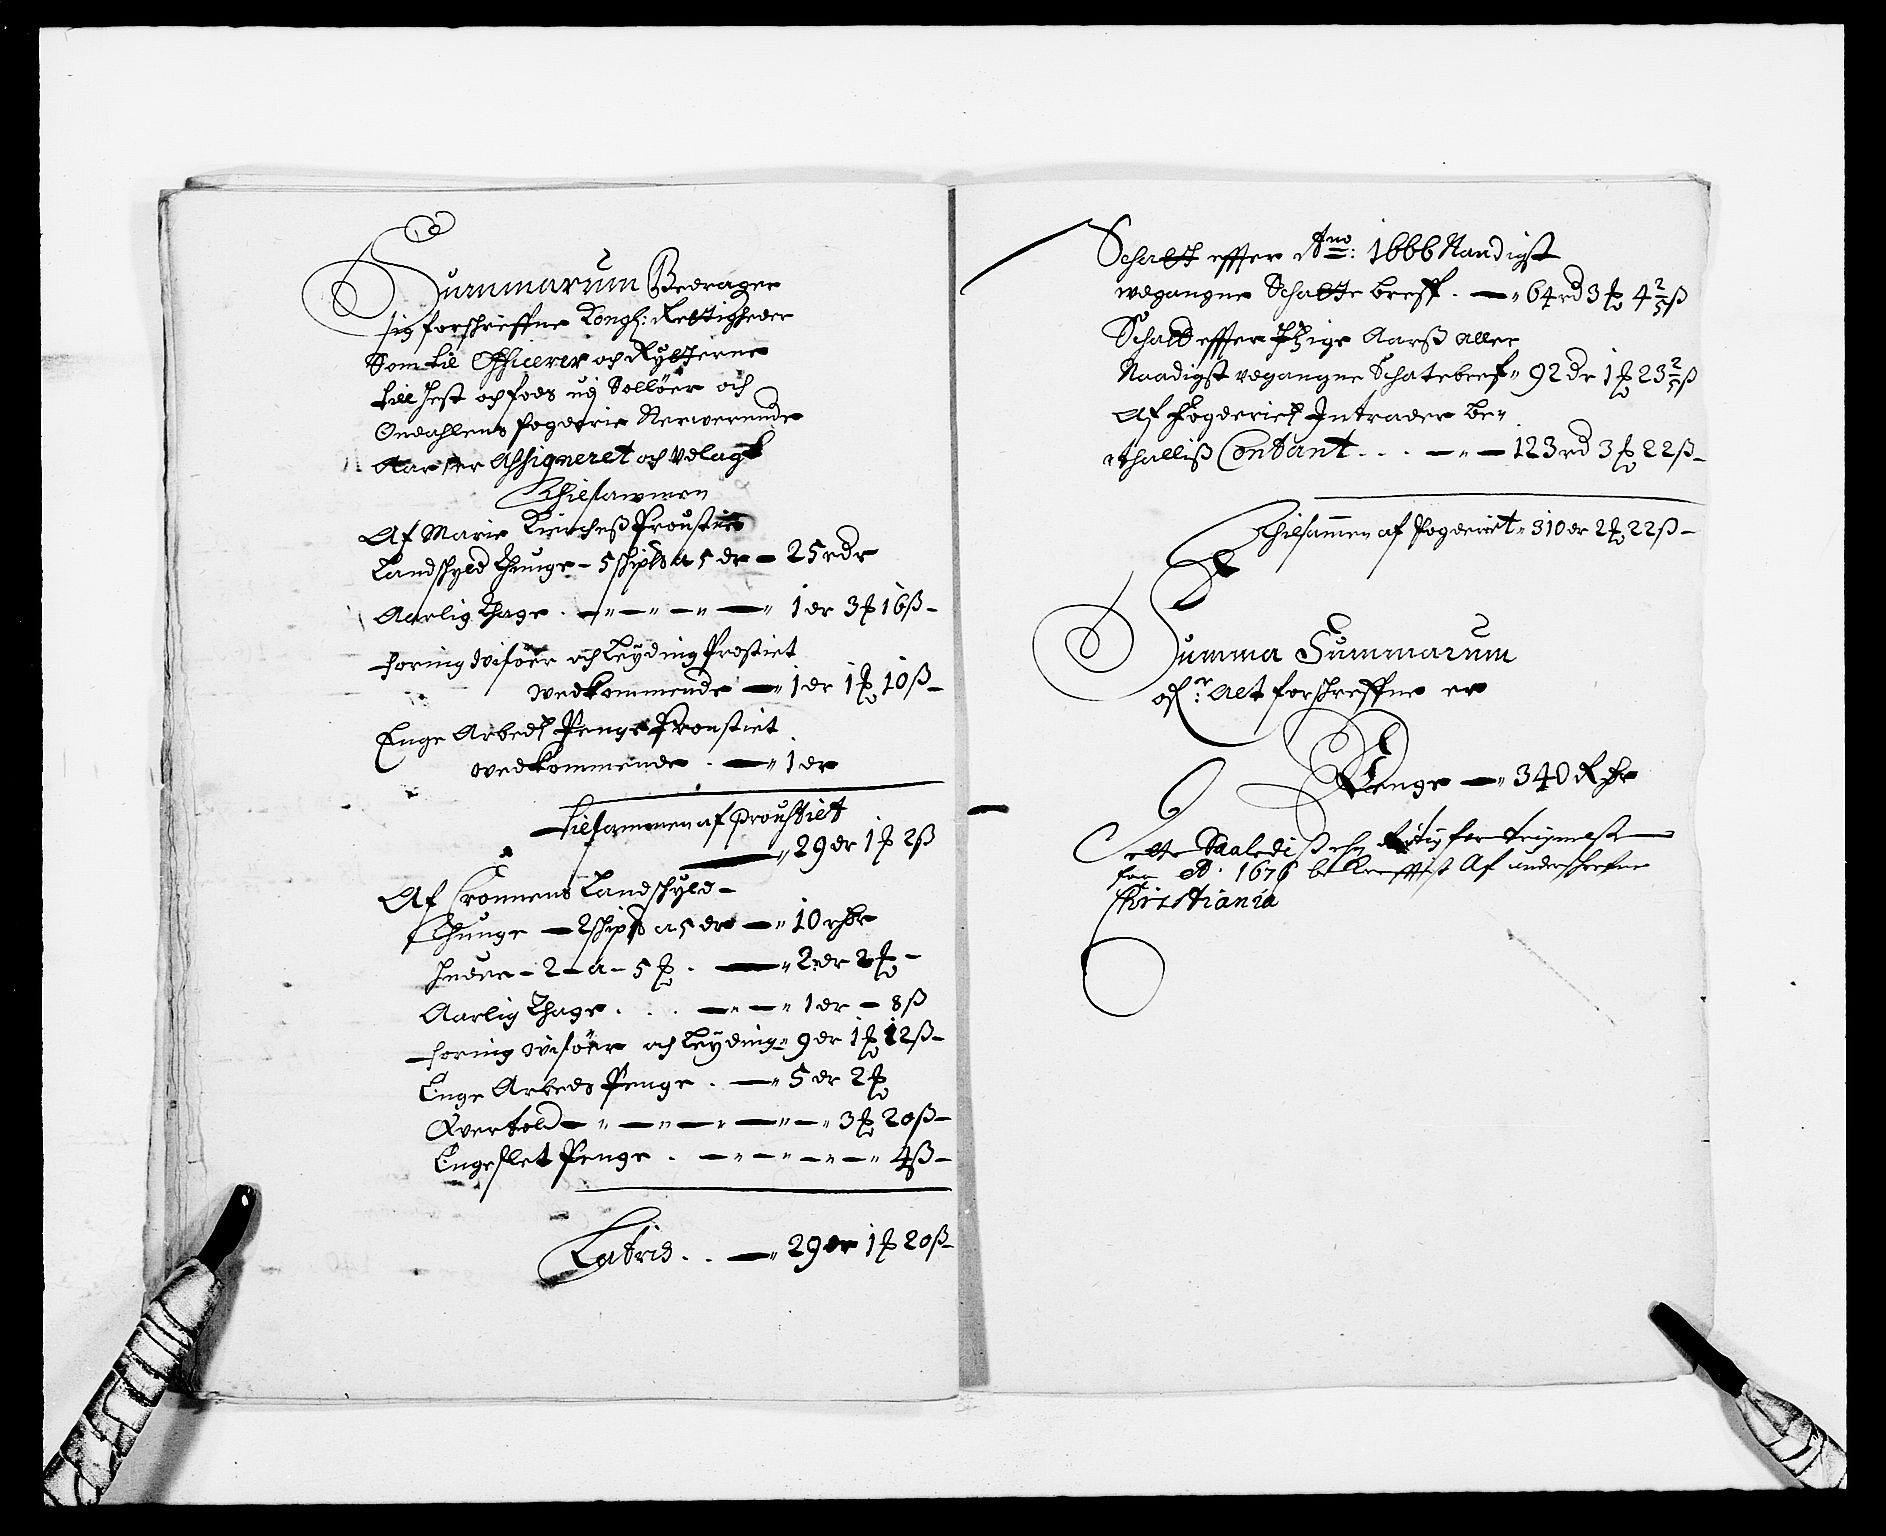 Summarum Bedrager
sig forschreffne Kongl: Rettigheder
Som til Officerer och Rytterne
till Hest och fods udj Solløer och
Ourdahlens fogderie Nerverende
Aar er Assigneret och Udlagt
Thilsammen
Af Marie Kircheß Proustie
Landschyld Thunge - 5 schipd a 5 dr - 25 rdr
Aarlig Thage . - " - " - " - " 1 dr 3 ₰ 16 ß -
Foring Wisøer och Leyding Prostiet
wedkommende - " 1 dr 1 ₰ 10 ß -
Enge Arbeds Penge Proustiet
wedkommende . - " 1 dr
Tilsammen af Proustiet
- " 29 dr 1 ₰ 2 ß
Af Cronens Landschyld -
Thunge - 2 schipd a 5 dr - " 10 rdr
Huder - 2 - a - 5 ₰ . - " 2 dr 2 ₰ -
Aarlig Thage . . . - " - " 1 dr - 8 ß
Foring Wisøer och Leyding " 9 dr 1 ₰ 12 ß -
Enge Arbeds Penge . - " 5 dr 2 ₰
Qvertold - " - " - " - " - " 3 ₰ 20 ß -
Engeslet Penge . - " - " - " - " 4 ß -
Latris . . - " 29 dr 1 ₰ 20 ß -
Schatt effter Ano: 1666 Naadigst
udgangne Schatte breff . - " 64 rd 3 ₰ 4 2/5 ß
Schatt effter Itzige Aarß aller
Naadigst udgangne Schatebref " 92 dr 1 ₰ 23 2/5 ß
Af Fogderietz Intrader be-
thalliß Contant . . . - " - 123 rd 3 ₰ 22 ß -
Thilsammen af Fogderiet " 310 dr 2 ₰ 22 ß -
Summa Summarum
Alt forschreffne er
Penge - " 340 Rdr
Dette Saaledis
for Ao 1676 bekrefftist Af underschrefne
Christiania